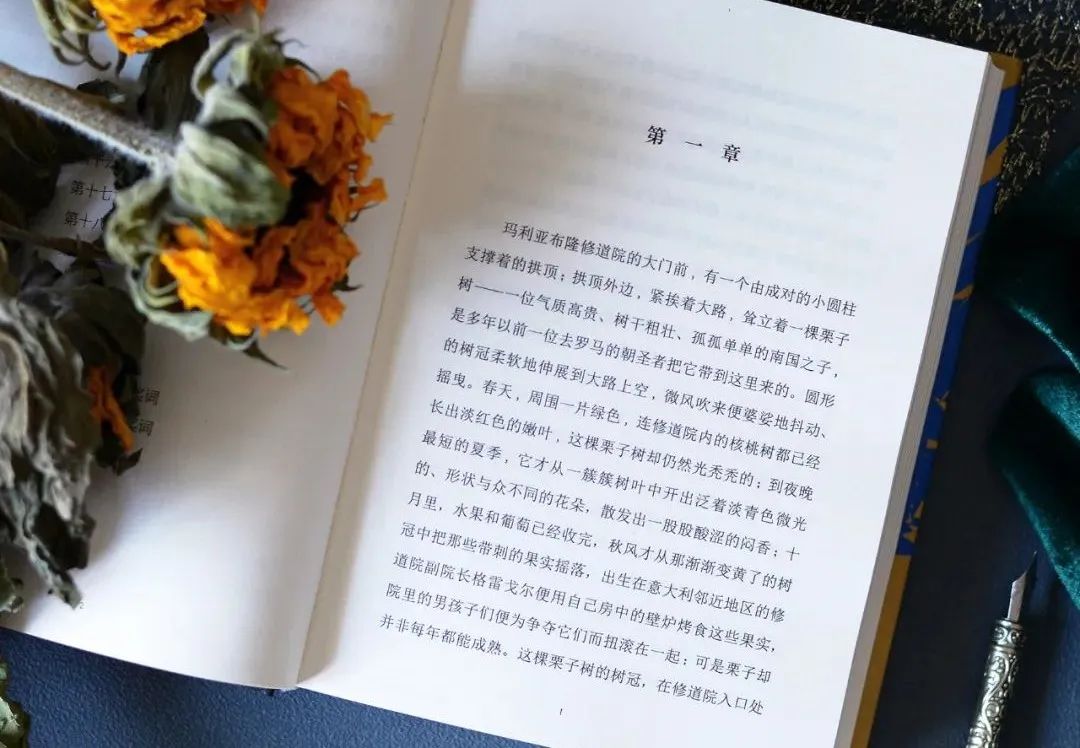 第十七
第十八
奖词
奖词
2
第一章
玛利亚布隆修道院的大门前，有一个由成对的小圆柱
支撑着的拱顶；拱顶外边，紧挨着大路，耸立着一棵栗子
树——一位气质高贵、树干粗壮、孤孤单单的南国之子，
是多年以前一位去罗马的朝圣者把它带到这里来的。圆形
的树冠柔软地伸展到大路上空，微风吹来便婆娑地抖动、
摇曳。春天，周围一片绿色，连修道院内的核桃树都已经
长出淡红色的嫩叶，这棵栗子树却仍然光秃秃的；到夜晚
最短的夏季，它才从一簇簇树叶中开出泛着淡青色微光
的、形状与众不同的花朵，散发出一股股酸涩的闷香；十
月里，水果和葡萄已经收完，秋风才从那渐渐变黄了的树
冠中把那些带刺的果实摇落，出生在意大利邻近地区的修
道院副院长格雷戈尔便用自己房中的壁炉烤食这些果实，
院里的男孩子们便为争夺它们而扭滚在一起；可是栗子却
并非每年都能成熟。这棵栗子树的树冠，在修道院入口处
1